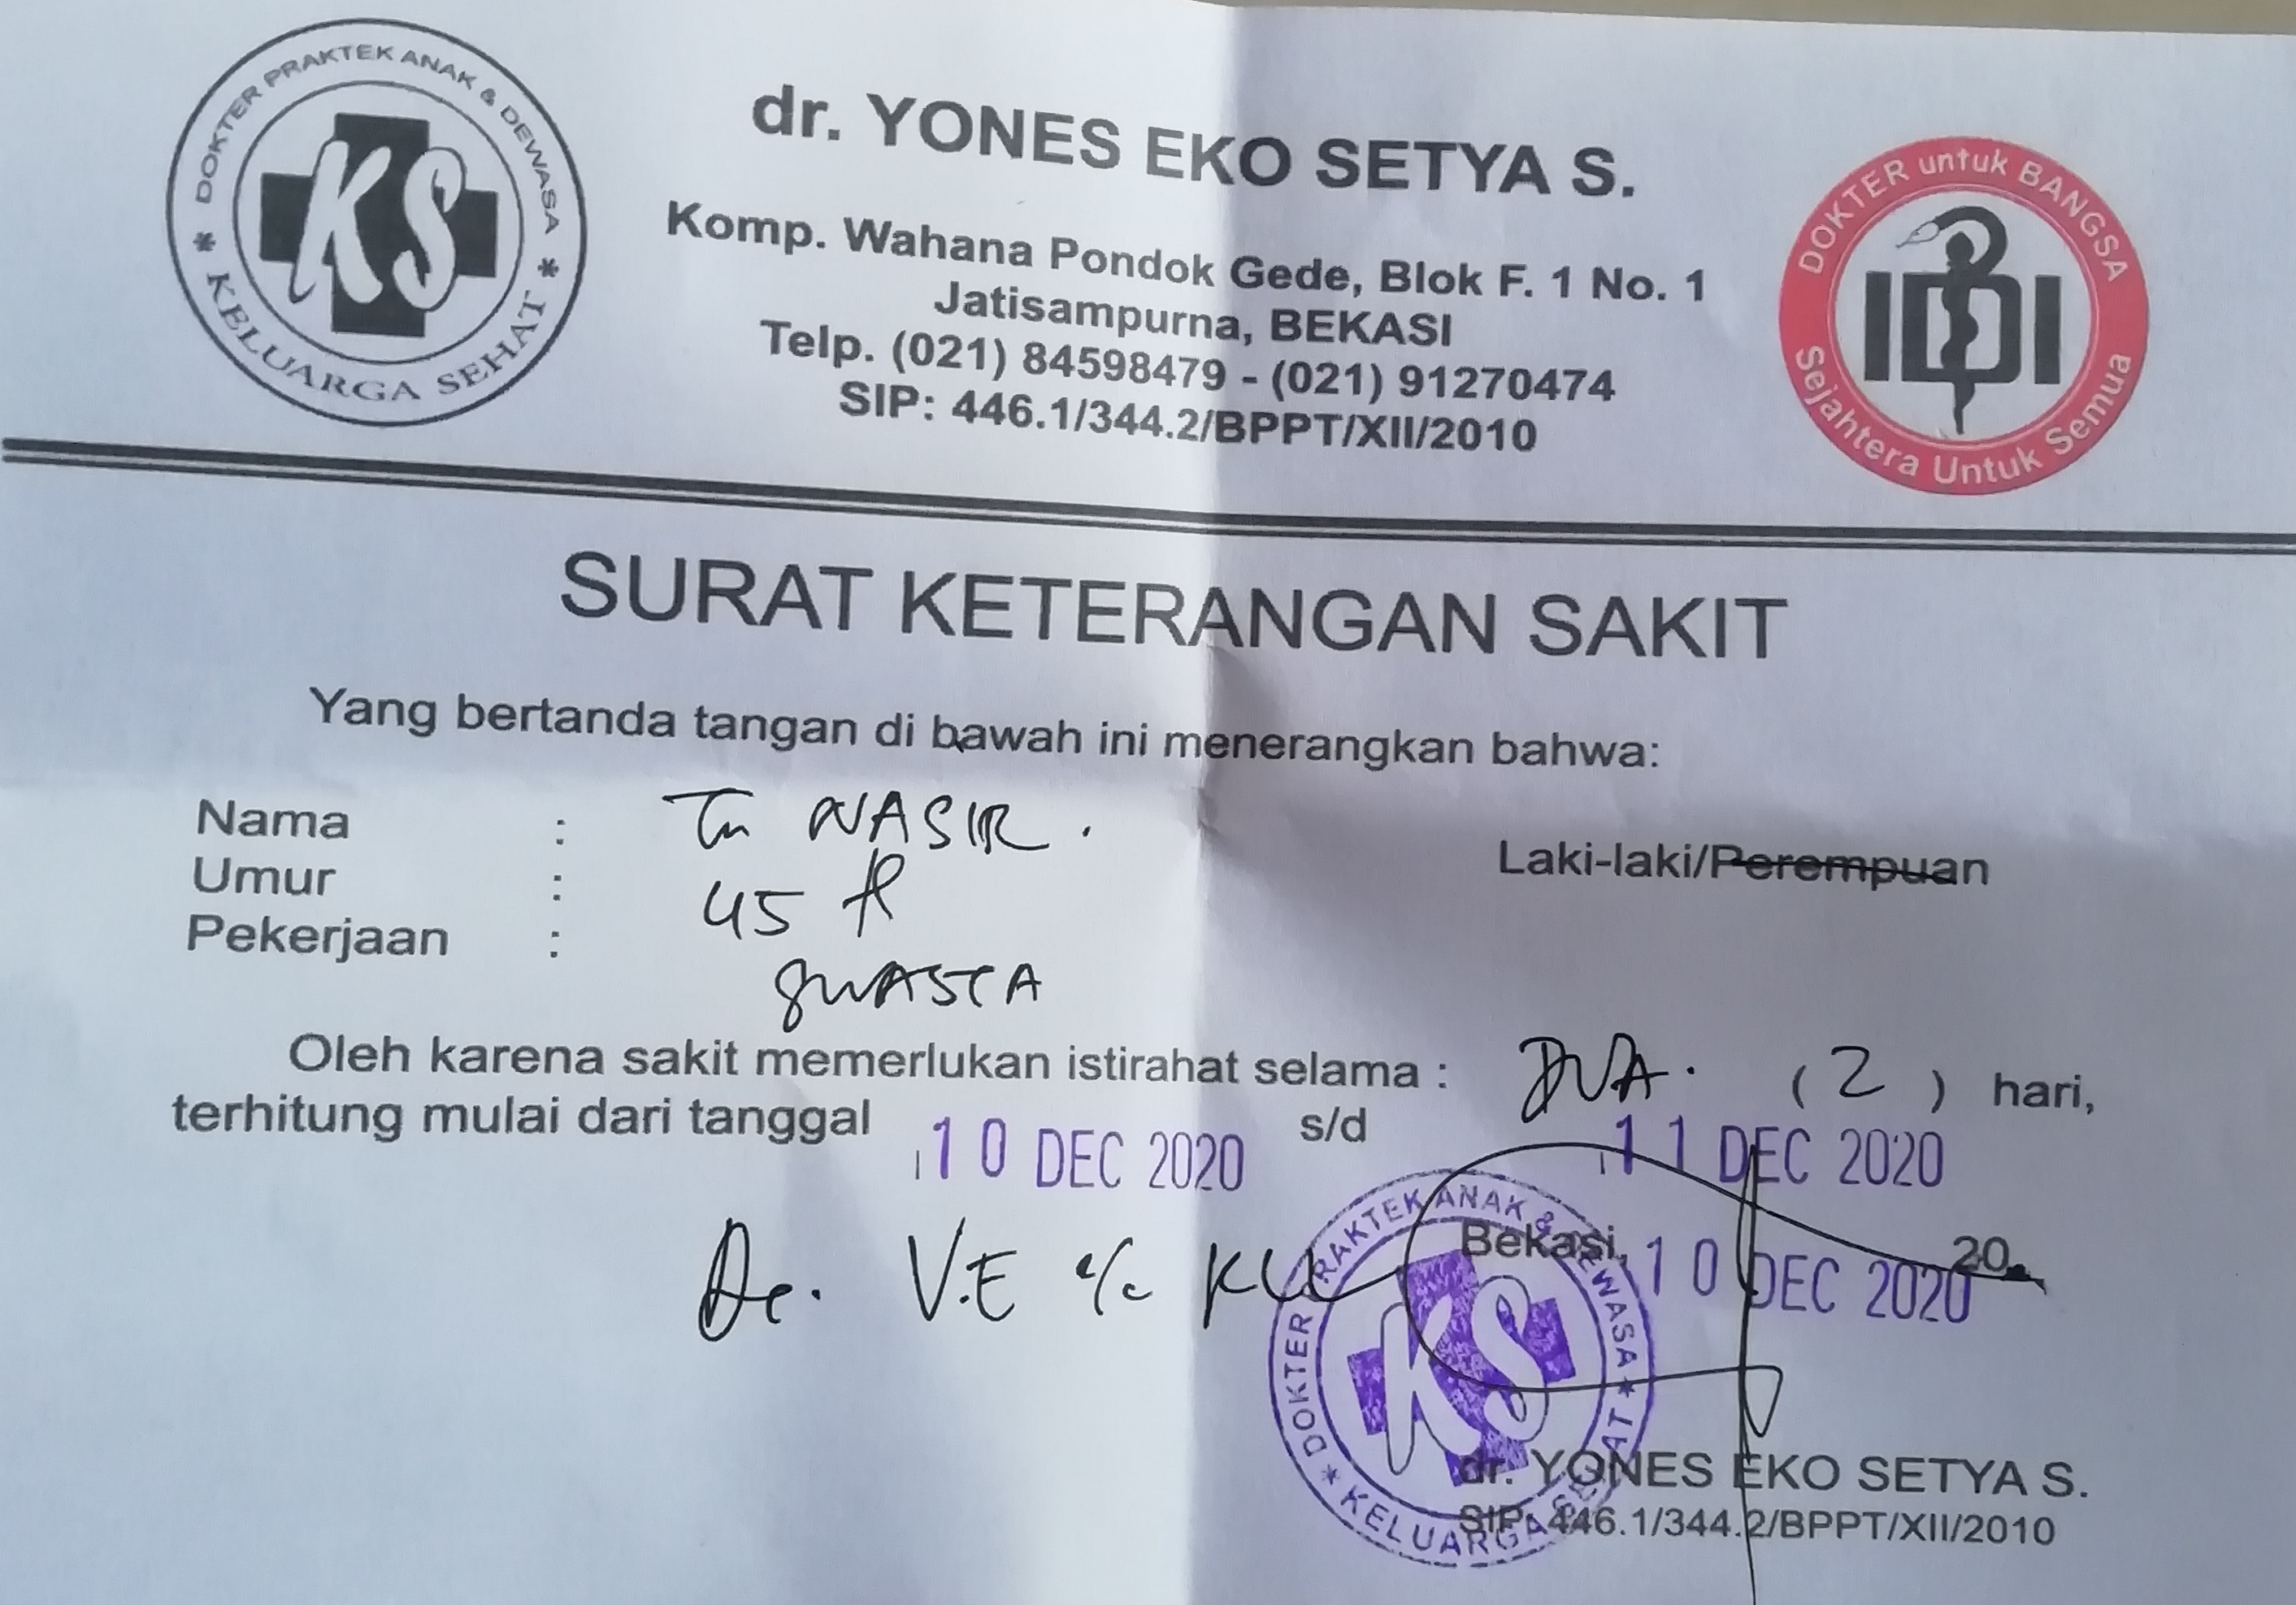 DOKTER PRAKTEK ANAK & DEWASA
KS
* KELUARGA SEHAT *
dr. YONES EKO SETYA S.
Komp. Wahana Pondok Gede, Blok F. 1 No. 1
Jatisampurna, BEKASI
Telp. (021) 84598479 - (021) 91270474
SIP: 446.1/344.2/BPPT/XII/2010
DOKTER untuk BANGSA
IDI
Sejahtera Untuk Semua
SURAT KETERANGAN SAKIT
Yang bertanda tangan di bawah ini menerangkan bahwa:
Nama : Tn NASIR. Laki-laki/Perempuan
Umur : 45
Pekerjaan : SWASTA
Oleh karena sakit memerlukan istirahat selama : DUA. (2) hari,
terhitung mulai dari tanggal 10 DEC 2020 s/d 11 DEC 2020
V.E
Bekasi, 10 DEC 2020 20
DOKTER PRAKTEK ANAK & DEWASA
KS
* KELUARGA SEHAT *
dr. YONES EKO SETYA S.
SIP: 446.1/344.2/BPPT/XII/2010